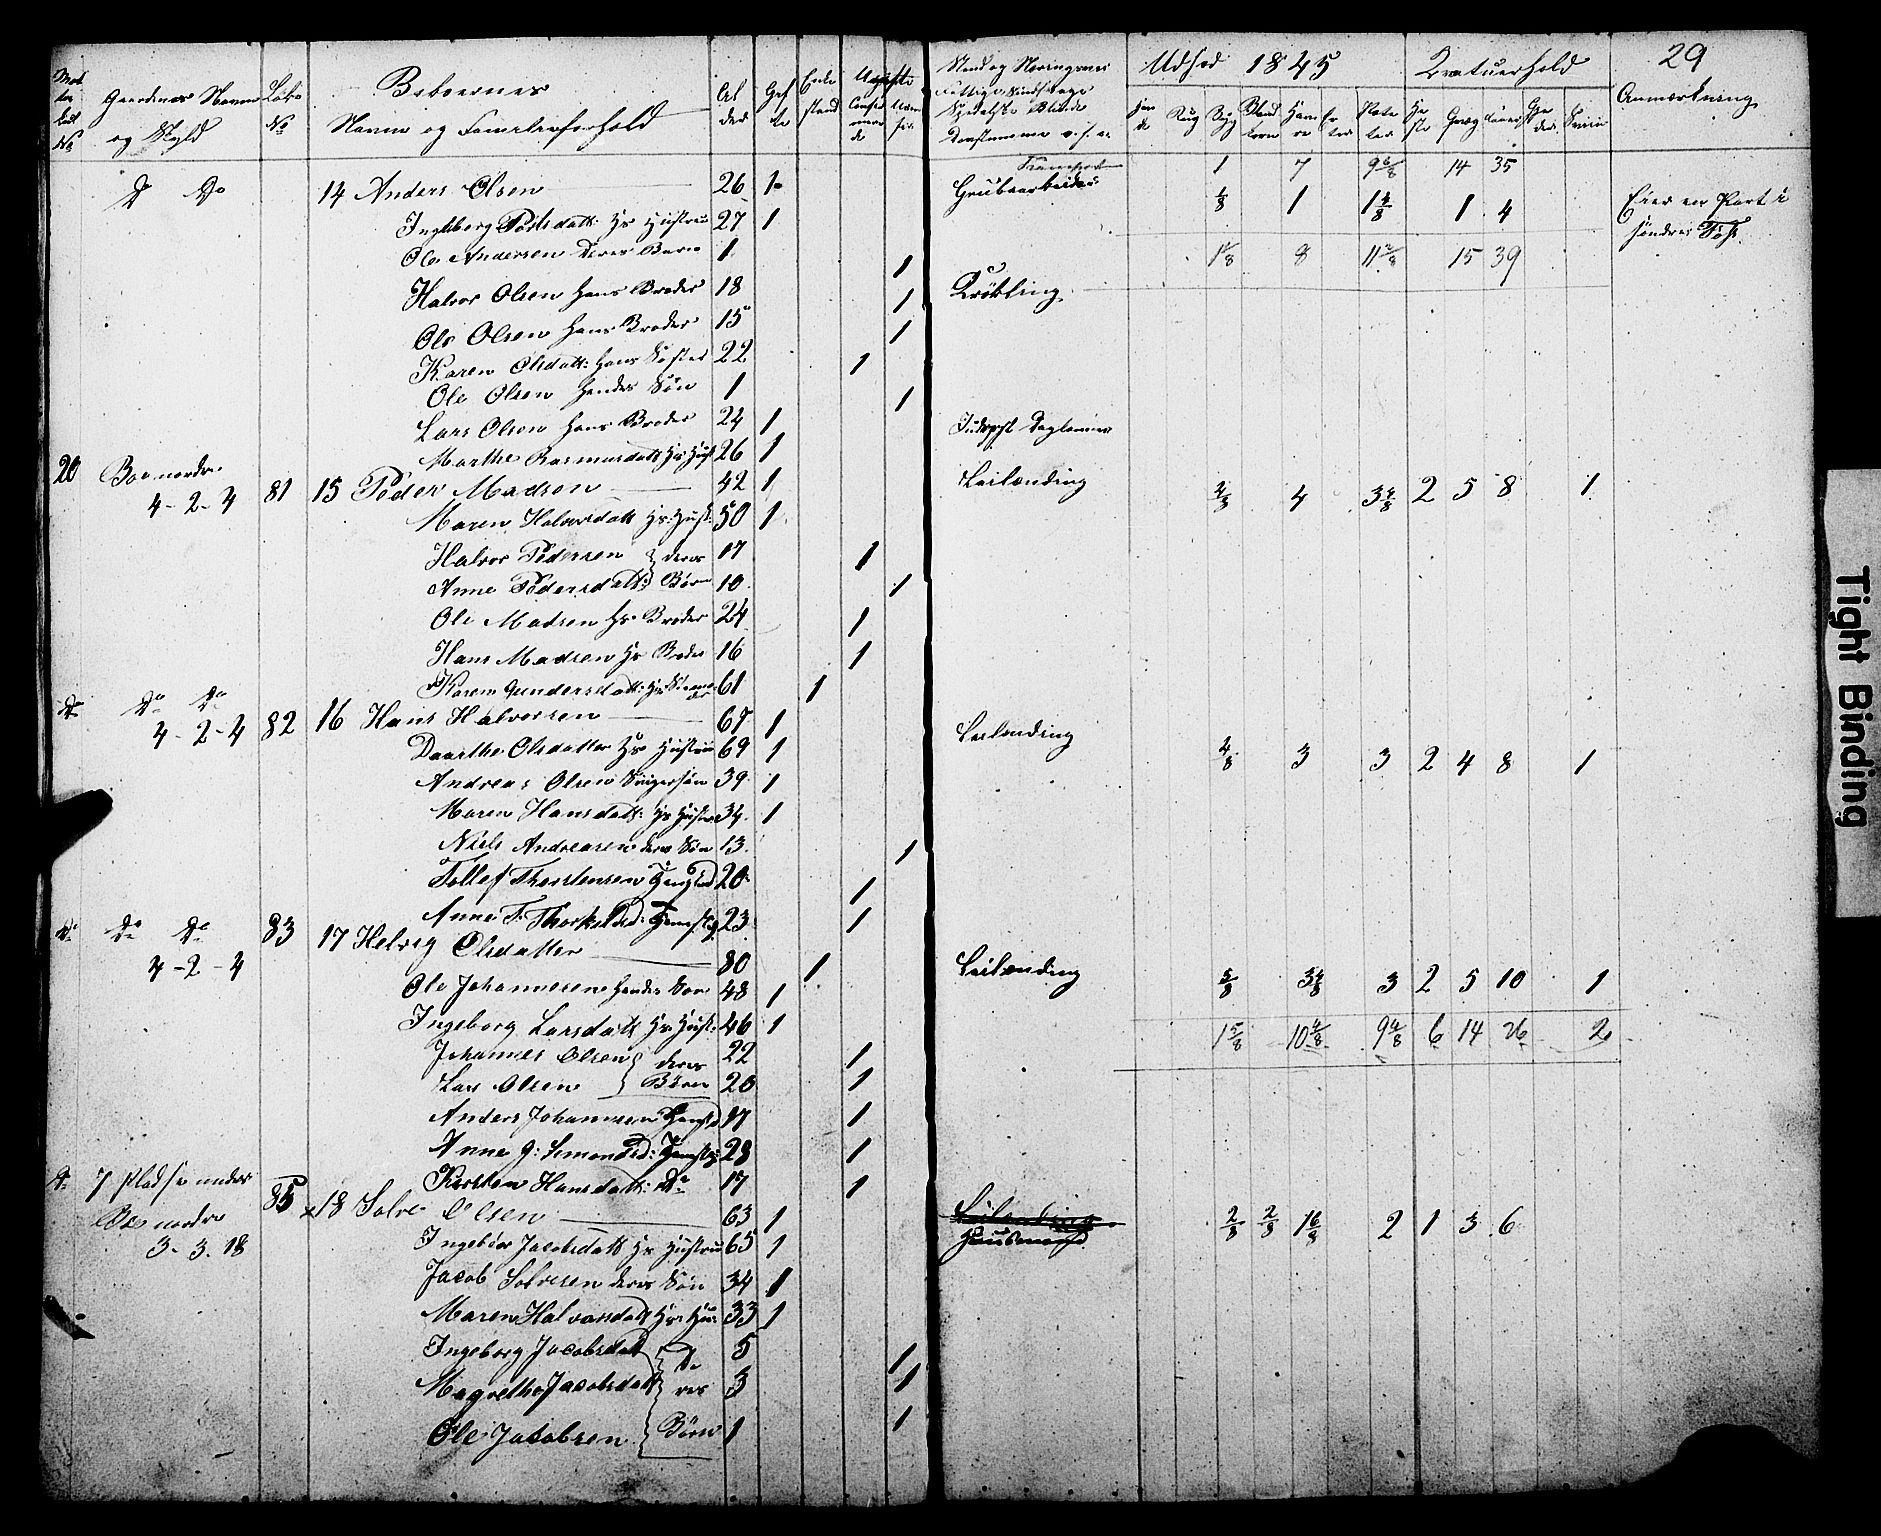 29
Gaardenes Navne og Skyld
Løbe No
Beboernes
Navne og Familieforhold
Al der
Gif te
Enke stand
Ugifte
Udsæd 1845
Rug Byg Bland korn Hav re Er ter Pote ter
Creaturhold
He ste
Anmærkning
1 7 9 6/8 14 35
Do Do 14 Anders Olsen 26 1 Grubearbeider 1/8 1 1 4/8 1 4 Eier en Part i
Ingeborg Hs Hustrue 27 1 søndre
Ole Andersen Deres Barn 1 1 1 1/8 8 11 2/8 15 39
Halvor Olsen Hans Broder 18 1
Ole Olsen Hans Broder 15 1
Karen Olsdatt: Hans Søster 22 1
Ole Olsen Hendes Søn 1 1
Lars Olsen Hans Broder 24 1 Inderst Daglønner
Marthe Rasmusdatt Hs Hust 26 1
20 Boe nordre
4-2-4 81 15 Peder Madsen 42 1 Leilænding 4 3 4/8 2 5 8 1
Maren Halvorsdatt Hs: Hust: 50 1
Halvor Pedersen } deres 17 1
Anne Pedersdatt: } Børn 10 1
Ole Madsen Hs Broder 24 1
Hans Madsen Hs Broder 16 1
Karen Gundersdatt: Hs 61 1
Do Do Do
4-2-4 82 16 Hans Halvorsen 67 1 Leilænding 4/8 3 3 2 4 8 1
Daarthe Olsdatter Hs Hustrue 69 1
Andreas Olsen Svigersøn 39 1
Maren Hansdatt: Hs Hustrue 34 1
Niels Andreasen deres Søn 13 1
Tollef Thorstensen 20 1
Anne T: Thorkelsd: 23 1
Do Do Do
4-2-4 83 17 Helvig Olsdatter 80 1 Leilænding 5/8 3 4/8 3 2 5 10 1
Ole Johannesen Hendes Søn 48 1
Ingeborg Larsdatt Hs Hust: 46 1 1 5/8 10 4/8 9 4/8 6 14 26 2
Johannes Olsen } deres 22 1
Lars Olsen } Børn 20 1
Anders Johannesen 17 1
Anne G: Simonsd: 28 1
Kirsten Hansdatt: Do 17 1
Do 7 Pladse under
Boe nordre
3-3-18 85 x18 Solve Olsen 63 1 Leilænding 2/8 2/8 1 6/8 2 1 3 6
Huusmand
Ingebor Jacobsdatt Hs Hustrue 65 1
Jacob Solvesen deres Søn 34 1
Maren Halvorsdatt Hs: Hu: 33 1
Ingeborg Jacobsdatt } De 5 1
Magrethe Jacobsdatt } res 3 1
Ole Jacobsen } Børn 1 1
Tight Binding